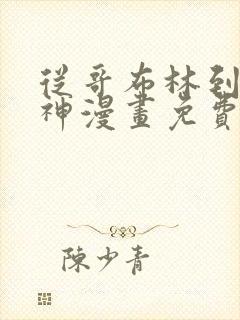 從哥布林到
神漫畫免費
陳少青